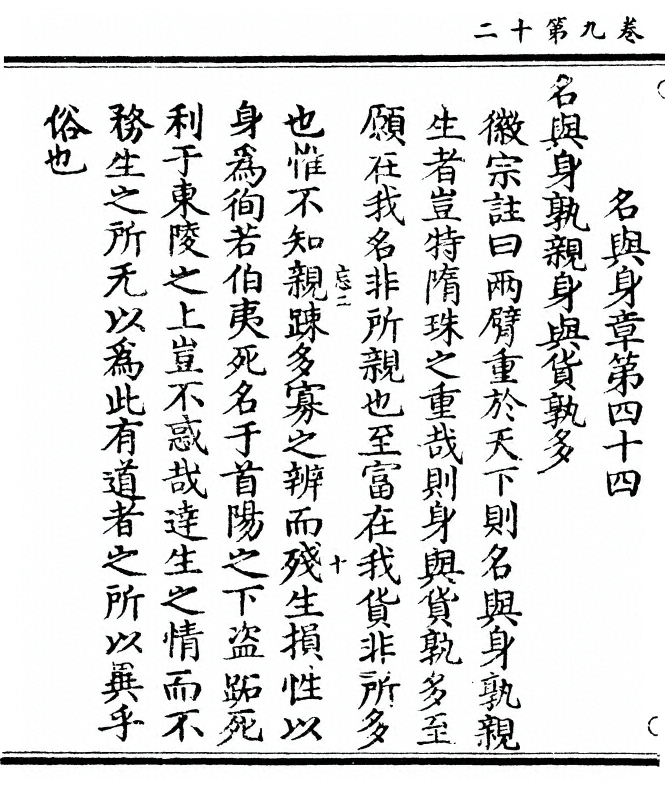 二十第九卷
名與身章第四十四
名與身孰親身與貨孰多
徽宗註曰兩臂重於天下則名與身孰親
生者豈特隋珠之重哉則身與貨孰多至
願在我名非所親也至富在我貨非所多
也惟不知親踈多寡之辨而殘生損性以
忘二
十
身為徇若伯夷死名于首陽之下盗跖死
利于東陵之上豈不惑哉達生之情而不
務生之所无以為此有道者之所以異乎
俗也